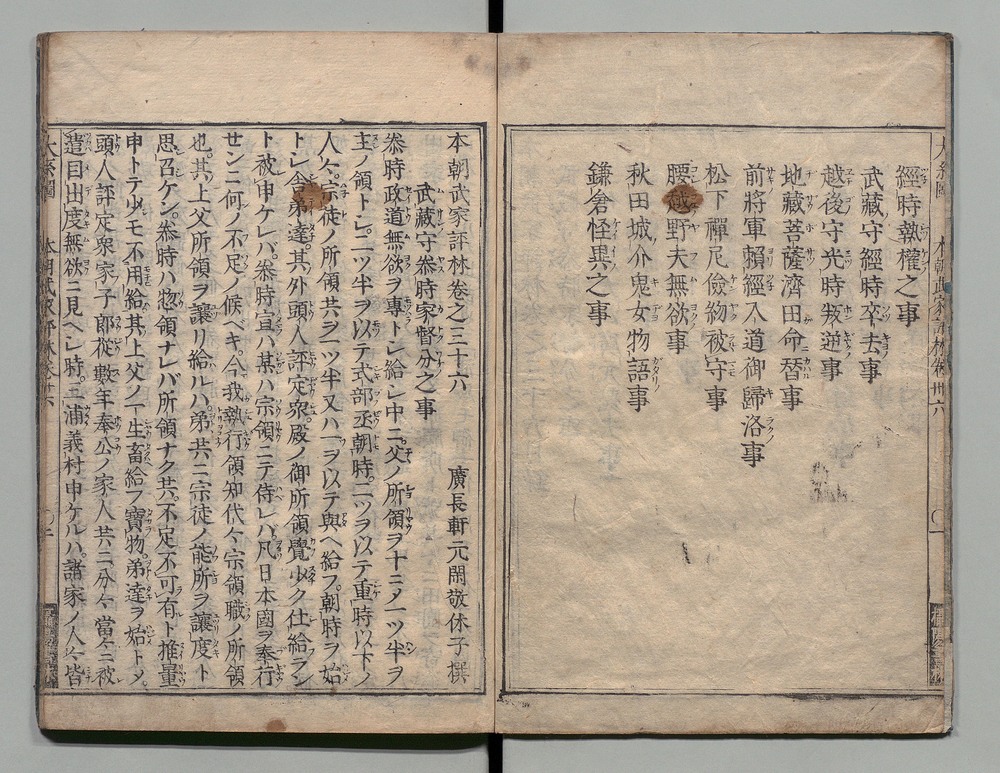 經時執權之事
武藏守經時卒去事
越後守光時叛逆事
地藏菩薩濟田命替事
前將軍賴經入道御歸洛事
松下禪尼儉約被守事
腰越野夫無欲事
秋田城介鬼女物語事
鎌倉怪異之事
本朝武家評林卷之三十六
廣長軒元閑敬休子撰
武藏守泰時家督分之事
泰時政道無欲ヲ專トシ給シ中ニ父ノ所領ヲ十ニタ一ツ半ヲ
主ノ領トシ二ツ半ヲ以テ式部丞朝時二ツヲ以テ重時以下ノ
人々宗徒ノ所領共ヲ一ツ半又ハ一ヲ以テ與ヘ給フ朝時ヲ始
トシ舎弟達其外頭人評定衆殿ノ御所領覺少ク仕給ラン
ト被申ケレバ泰時宣ハ某ハ宗領ニテ侍レバ凡日本國ヲ奉行
センニ何ノ不足ノ候ベキ今我執行領知代々宗領職ノ所領
也其上父所領ヲ讓リ給ルハ弟共ニ宗徒ノ能所ヲ讓度ト
思召ケン泰時ハ惣領ナレバ所領ナク共不定不可有ト推量
申トテ少モ不用給其上父ノ一生畜給フ寶物弟達ヲ始トメ
頭人評定衆家子郎從數年奉公ノ家人共ニ分々當々ニ被
遣目出度無欲ニ見ヘシ時三浦義村申ケルハ諸家ノ人々皆